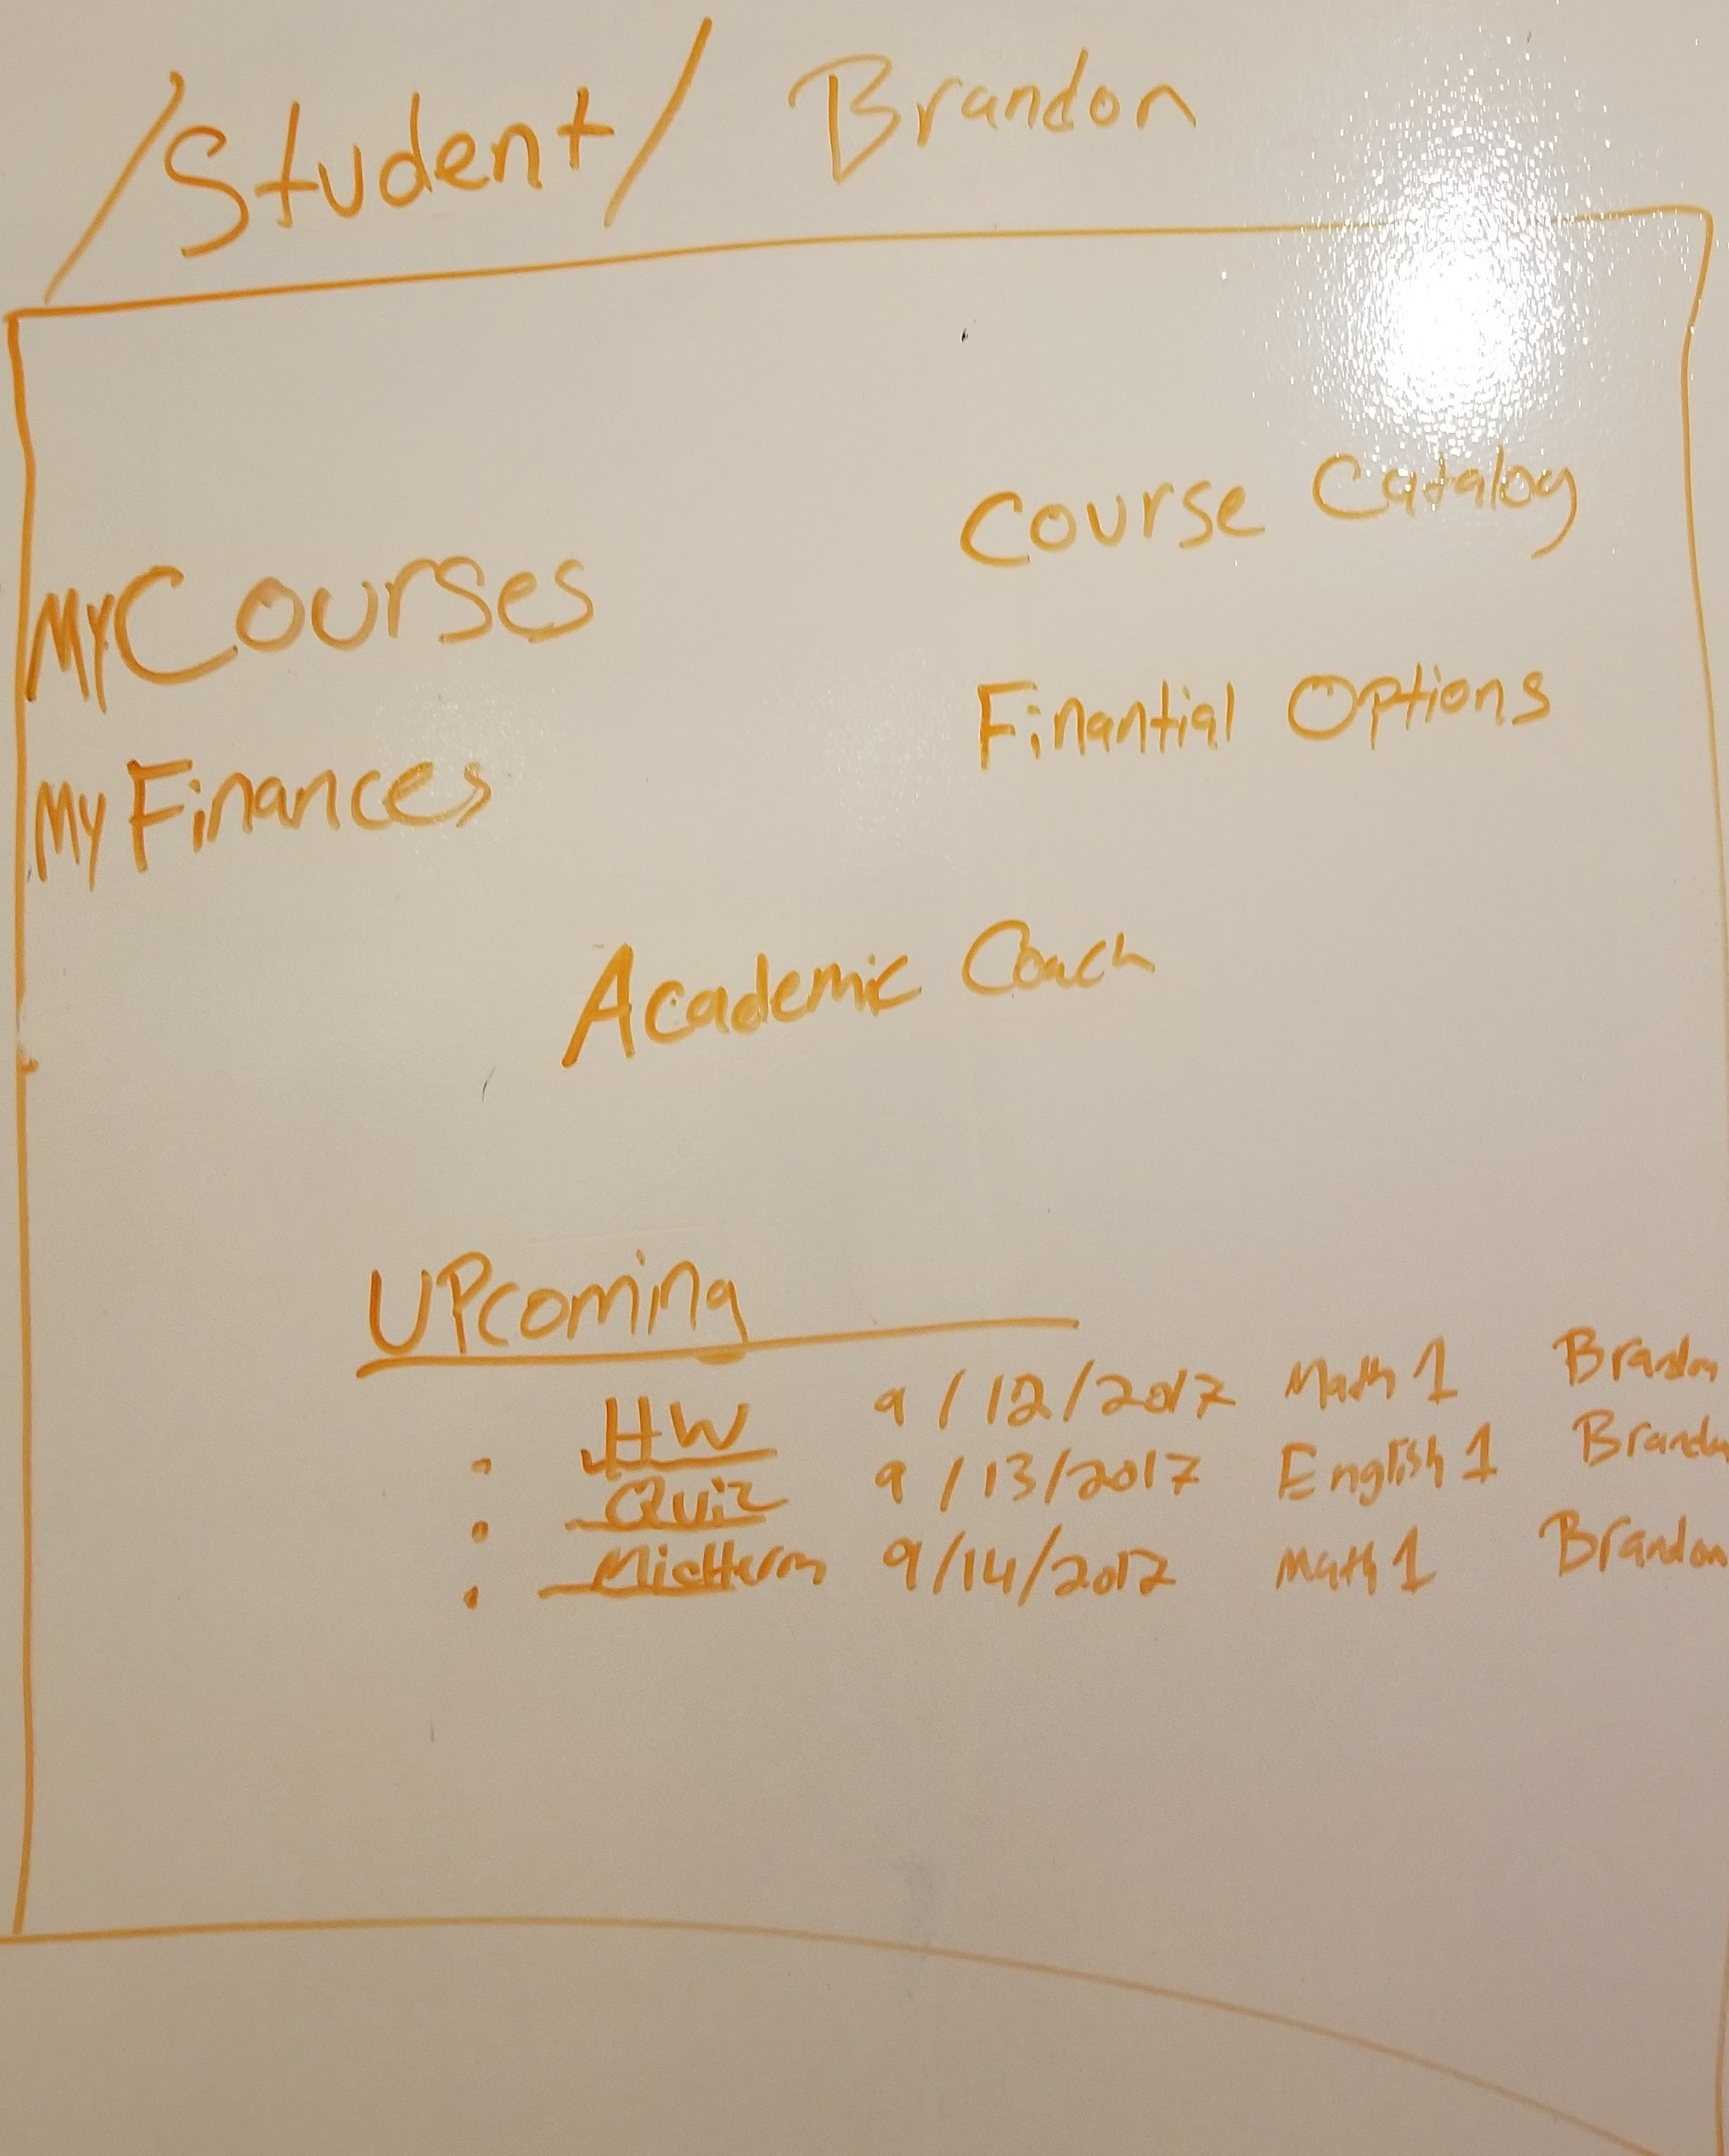 /Student/ Brandon
Course Catalog
My Courses
Finantial Options
My Finances
Academic Coach
UPcoming
. HW 9/12/2017 Math 1 Brandon
. Quiz 9/13/2017 English 1 Brandon
. Midterm 9/14/2017 Math 1 Brandon